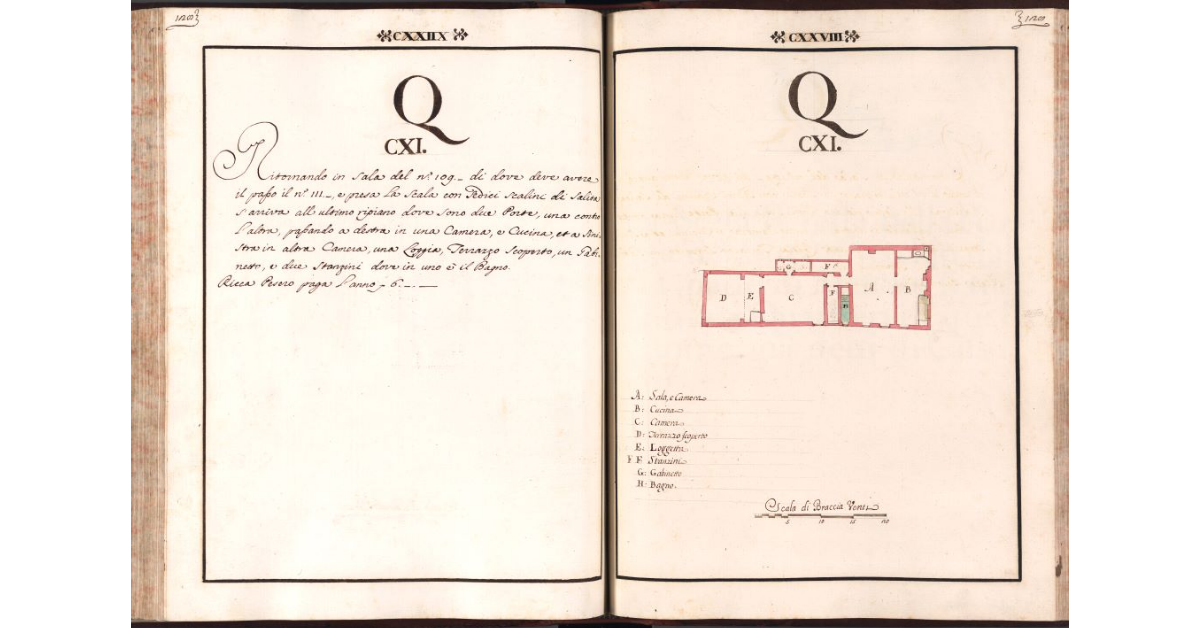 120
CXXIIX
Q
CXI.
Ritornando in Sala del nº. 109_ di dove deve avere
il passo il nº. 111_, e presa la Scala con Sedici Scalini di Salita
s'arriva all'ultimo ripiano dove sono due Porte, una contro
l'altra, passando a destra in una Camera, e Cucina, et a Sini-
stra in altra Camera, una Loggia, Terrazzo Scoperto, un Gabi-
netto, e due Stanzini dove in uno è il Bagno.
Ricca Pesero paga l'anno _ 6._._
120
CXXVIII
Q
CXI.
F
D
E
C
F
A
B
A: Sala, e Camera
B: Cucina
C: Camera
D: Terrazzo scoperto
E: Loggetta
F F Stanzini
G: Gabinetto
H: Bagno.
Scala di Braccia Venti
5 10 15 20